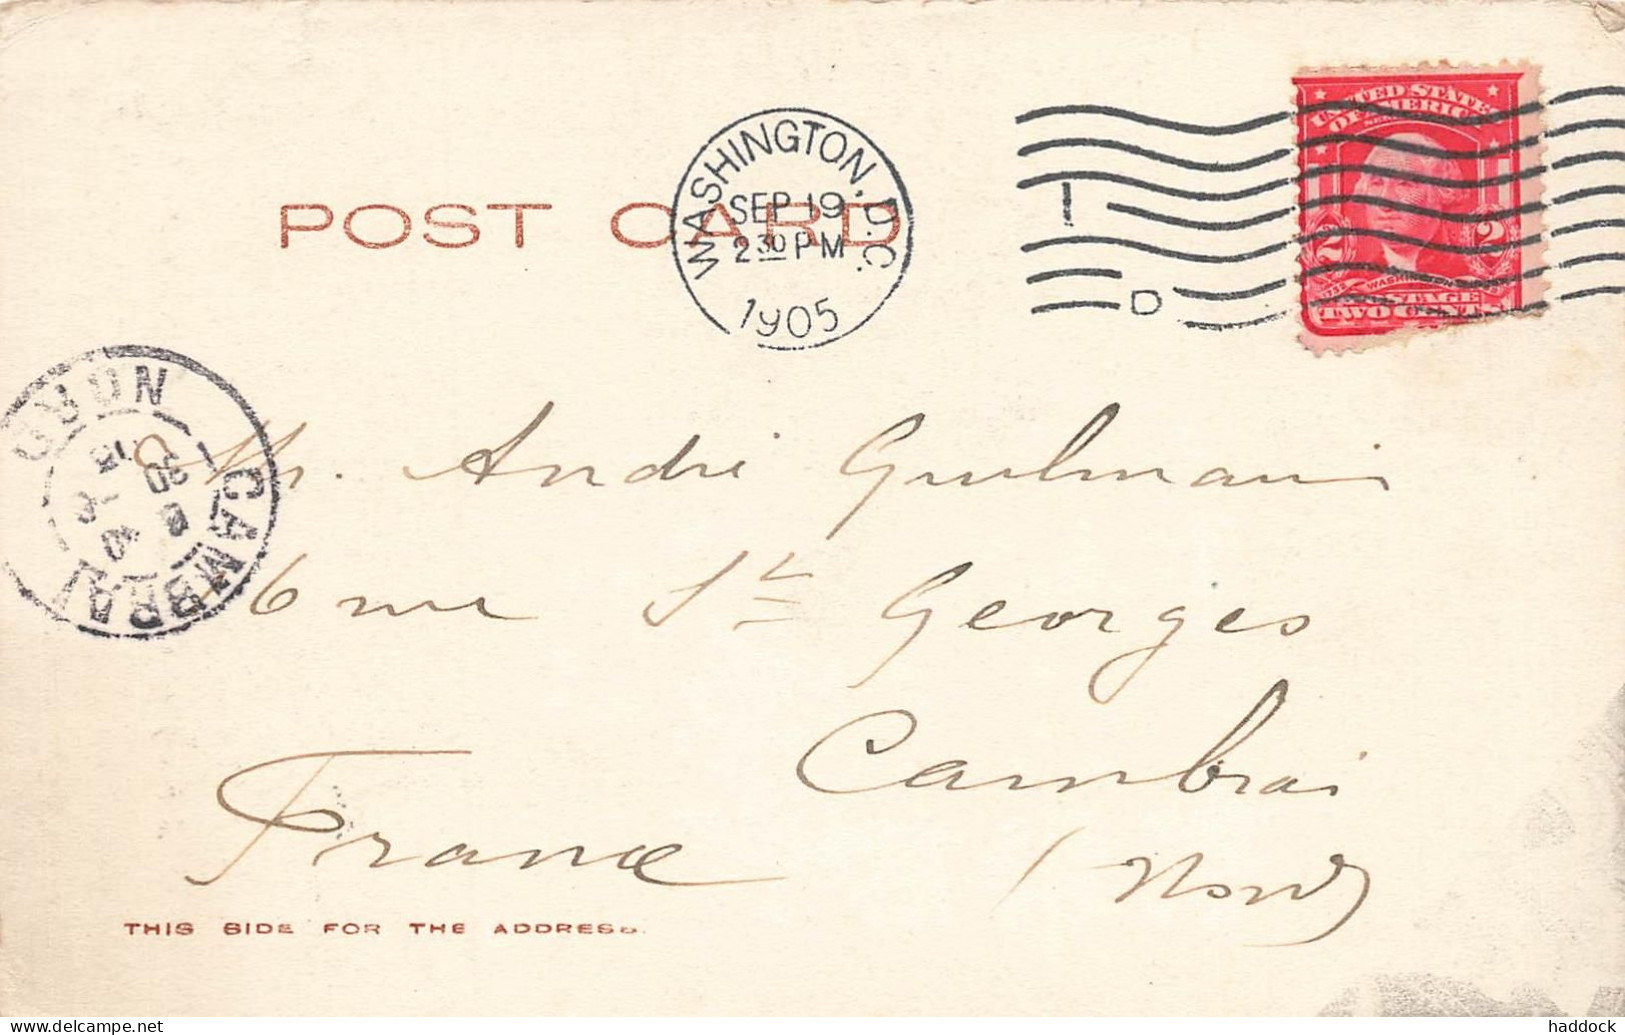 POST CARD
WASHINGTON, D.C.
SEP 19
2 30 PM
1905
1
D
UNITED STATES
OF AMERICA
2 2
WASHINGTON
POSTAGE
TWO CENTS
CAMBRAI NORD
M. André
6 rue St Georges
Cambrai
France (Nord)
THIS SIDE FOR THE ADDRESS.
delcampe.net
haddock